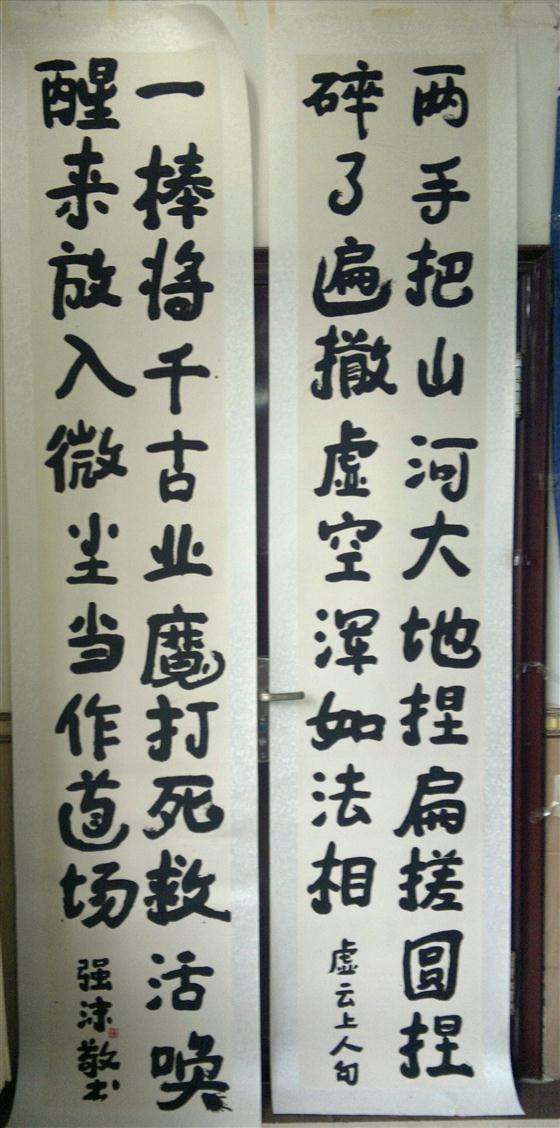 两手把山河大地捏扁搓圆捏
碎了遍撒虚空浑如法相
虚云上人句
一棒将千古业魔打死救活唤
醒来放入微尘当作道场
强凉敬书